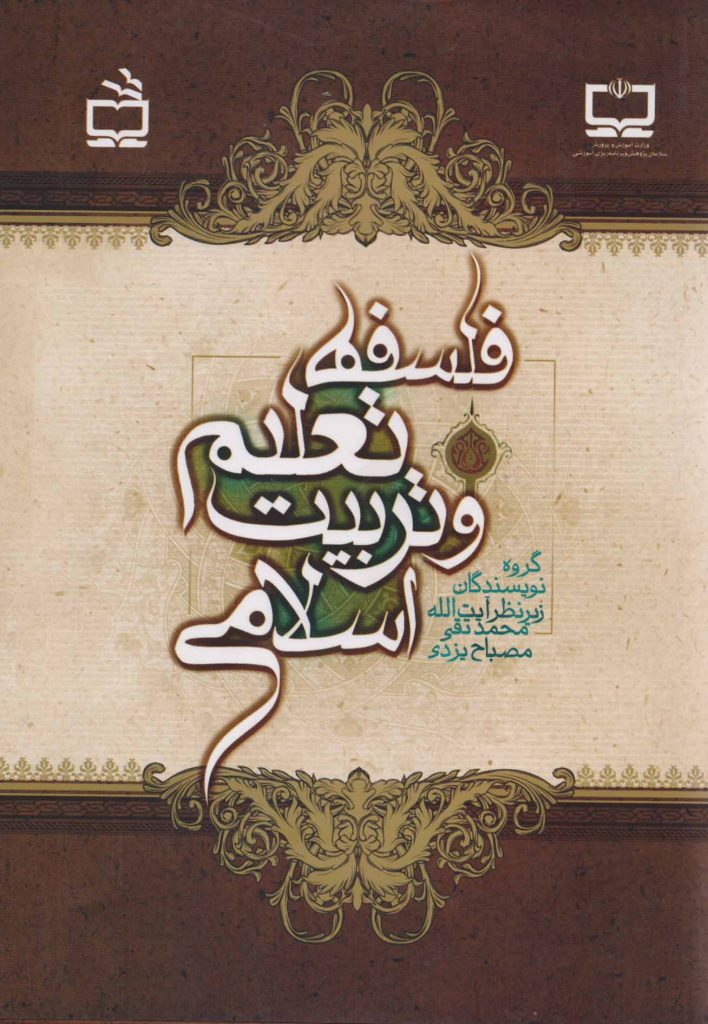 وزارت آموزش و پرورش
سازمان پژوهش و برنامه‌ریزی آموزشی
فلسفه
تعلیم
و تربیت
اسلامی
گروه
نویسندگان
زیر نظر آیت الله
محمد تقی
مصباح یزدی